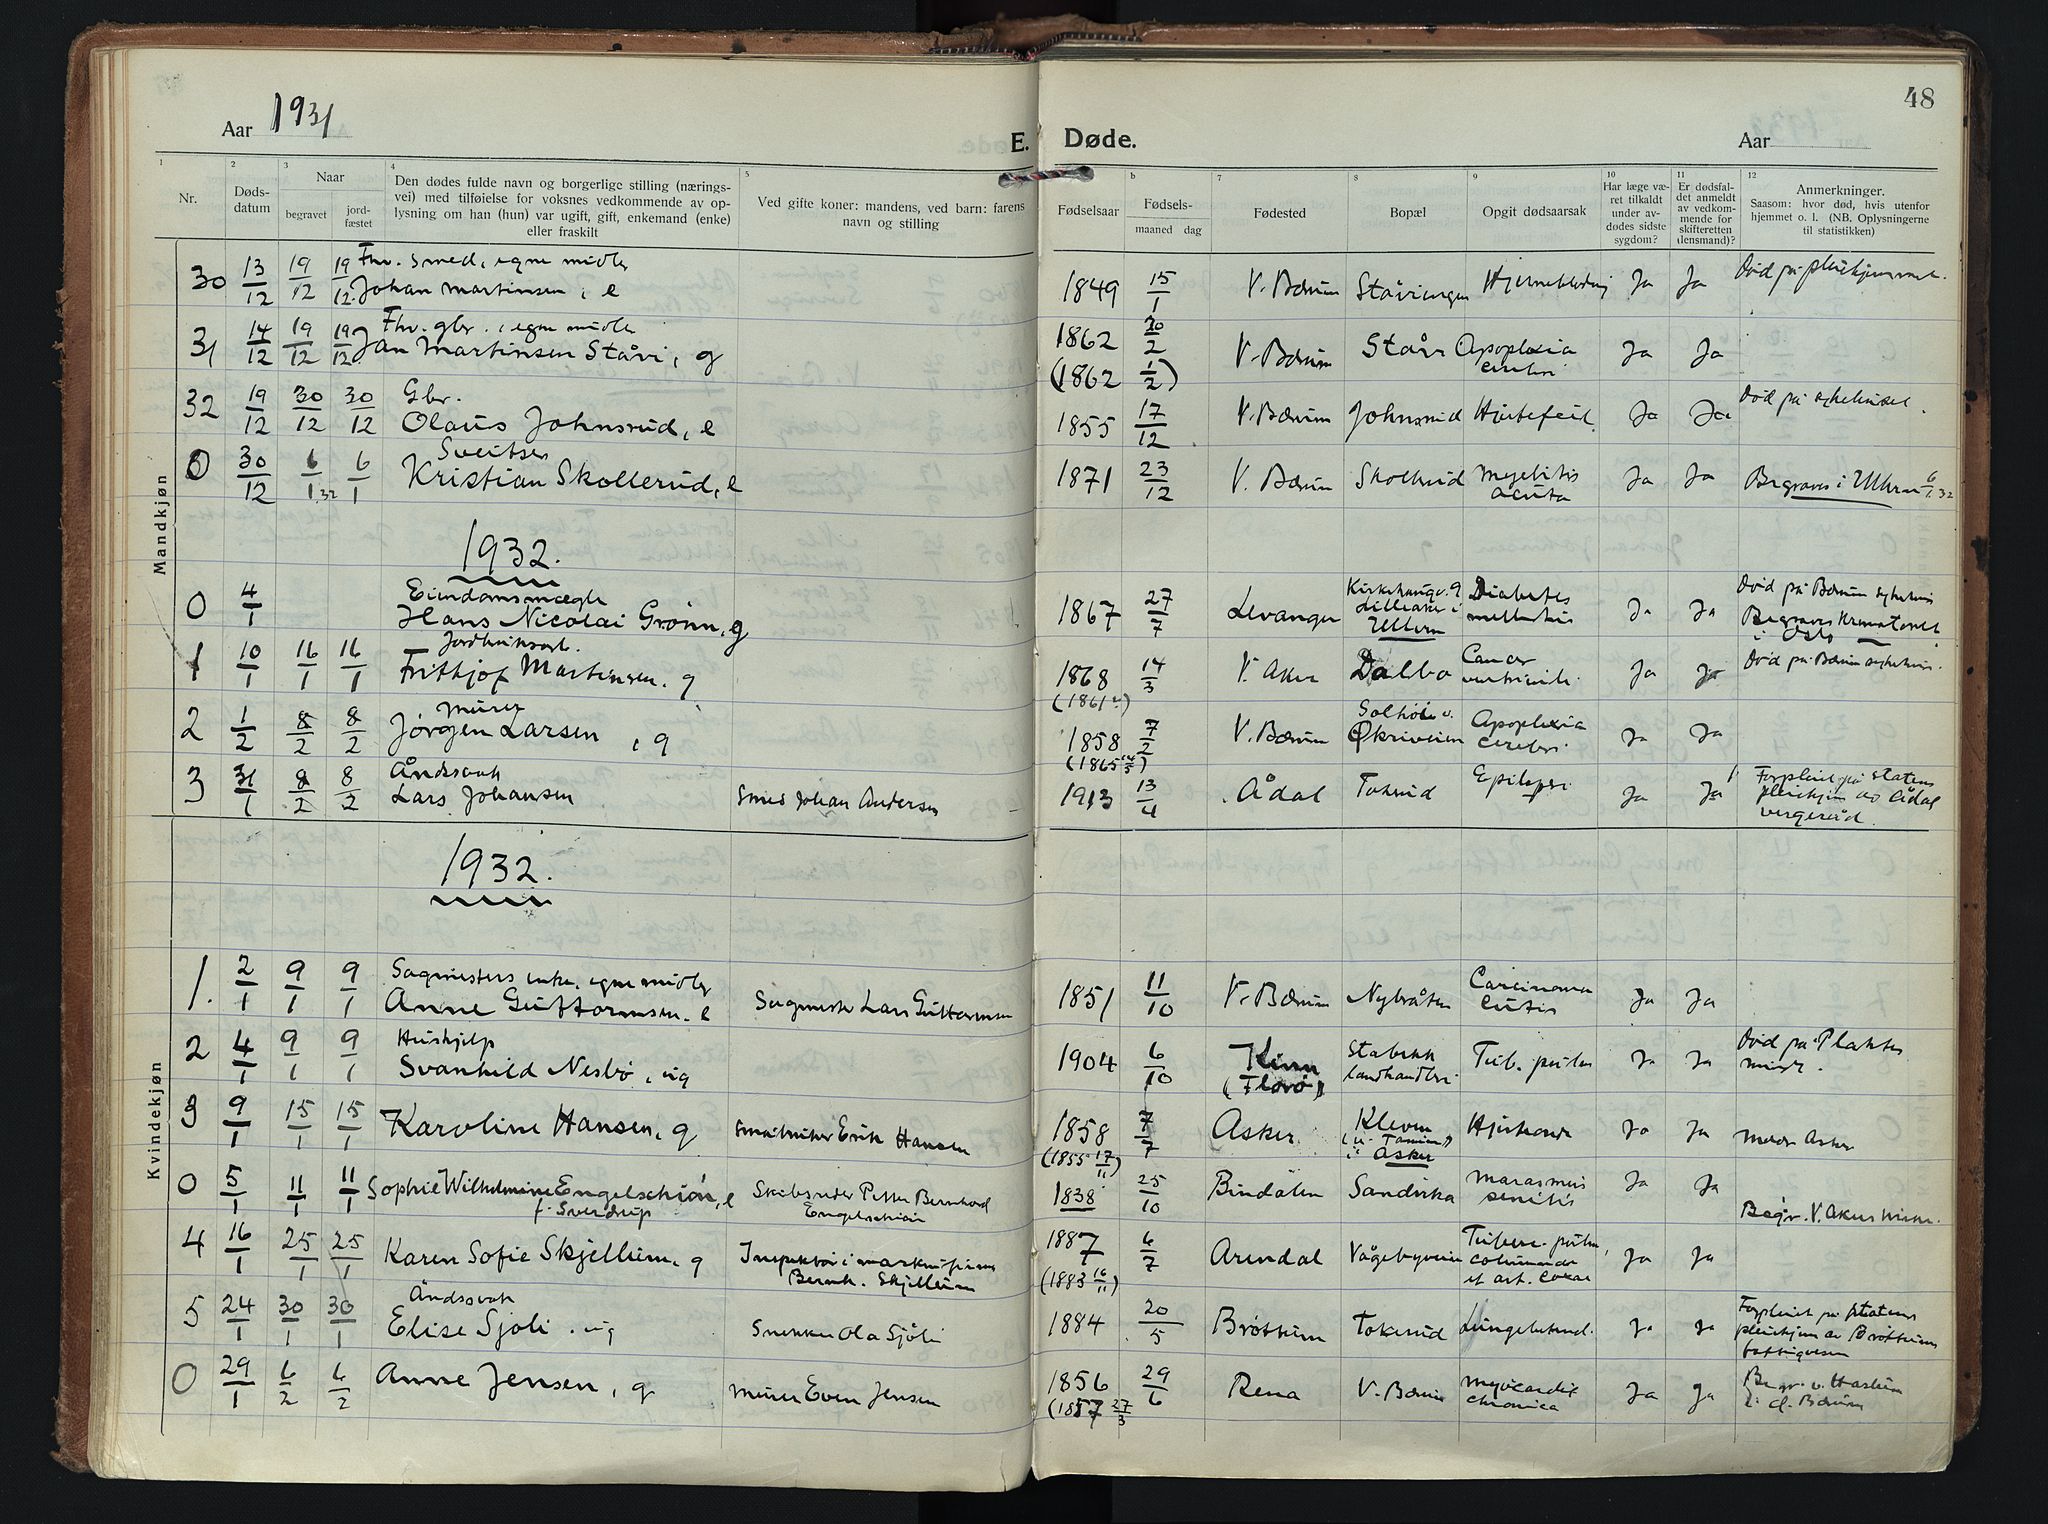 Aar 1931
E. Døde.
Aar
48
1 2 3 4 5 b 7 8 9 10 11 12
Nr.
Døds-
datum
Naar
begravet
jord-
fæstet
Den dødes fulde navn og borgerlige stilling (nærings-
vei) med tilføielse for voksnes vedkommende av op-
lysning om han (hun) var ugift, gift, enkemand (enke)
eller fraskilt
Ved gifte koner: mandens, ved barn: farens
navn og stilling
Fødselsaar
Fødsels-
maaned dag
Fødested
Bopæl
Opgit dødsaarsak
Har læge væ-
ret tilkaldt
under av-
dødes sidste
sygdom?
Er dødsfal-
det anmeldt
av vedkom-
mende for
skifteretten
(lensmand)?
Anmerkninger.
Saasom: hvor død, hvis utenfor
hjemmet o. l. (NB. Oplysningerne
til statistikken)
Mandkjøn
Fhv. smed, egne midler
30 13/12 19/12 19/12 Johan Martinsen, e 1849 15/1 V. Bærum Ståvivegen Hjerneblødnig Ja Ja Død på pleiehjemmet.
Fhv. gbr. egne midler
31 14/12 19/12 19/12 Jan Martinsen Ståvi, g 1862 20/2 V. Bærum Ståvi Apoplexia cerebri Ja Ja
(1862 1/2)
Gbr.
32 19/12 30/12 30/12 Olaus Johnsrud, e 1855 17/12 V. Bærum Johnsrud Hjertefeil Ja Ja Død på sykehuset.
Sveitser
0 30/12 6/1 32 6/1 Kristian Skollerud, e 1871 23/12 V. Bærum Skollerud Myelitis acuta Ja Ja Begraves i Ullern 6/1 32
1932.
Eiendomsmægler
0 4/1 Hans Nicolai Grønn, g 1867 27/7 Levanger Lilleaker i Ullern Diabetes mellitus Ja Ja Død på Bærum sykehus
Begraves Krematoriet
i Oslo
1 10/1 16/1 16/1 Frithjof Martinsen, g 1868 14/3 V. Aker Dalbo Cancer ventriculi Ja Ja Død på Bærum sykehus.
Murer
2 1/2 8/2 8/2 Jørgen Larsen, g 1858 7/2 V. Bærum Solhøi v. Økriveien Apoplexia cerebri Ja Ja
Åndssvak
3 31/1 8/2 8/2 Lars Johansen Smed Johan Andersen 1913 13/4 Ådal Tokerud Epilepsi Ja Ja Forpleiet på statens
pleiehjem av Ådal
vergeråd.
1932.
Kvindekjøn
Sagmesters enke, egne midler
1. 2/1 9/1 9/1 Anne Guttormsen, e Sagmester Lars Guttormsen 1851 11/10 V. Bærum Nybråten Carcinoma cutis Ja Ja
Hushjelp
2 4/1 9/1 9/1 Svanhild Nesbø, ug 1904 6/10 Kinn (Florø) Stabekk landhandleri Tub. pulm Ja Ja Død på
3 9/1 15/1 15/1 Karoline Hansen, g Småbruker Erik Hansen 1858 7/7 Asker Kleven i Asker Ja Ja Asker
(1855 17/11)
0 5/1 11/1 11/1 Sophie Wilhelmine Engelschiøn, e Skibsreder Petter Bernhard 1838 25/10 Bindalen Sandvika Marasmus senilis Ja Ja Begr. V. Aker kirke.
f. Sverdrup Engelschiøn
4 16/1 25/1 25/1 Karen Sofie Skjellum, g Inspektør i 1887 6/7 Arendal Vågebyveien Tuberc. pulm, columnae et art. coxae Ja Ja
Bernh. Skjellum (1883 16/11)
Åndssvak
5 24/1 30/1 30/1 Elise Sjøli, ug Snekker Ola Sjøli 1884 20/5 Brøttum Tokerud Lungebetend. Ja Ja Forpleiet på statens
pleiehjem av Brøttum
fattigvesen
0 29/1 6/2 6/2 Anne Jensen, g Murer Even Jensen 1856 29/6 Rena V. Bærum Myocardit chronica Ja Ja Begr. v. Haslum
(1857 27/3) k. Ø. Bærum